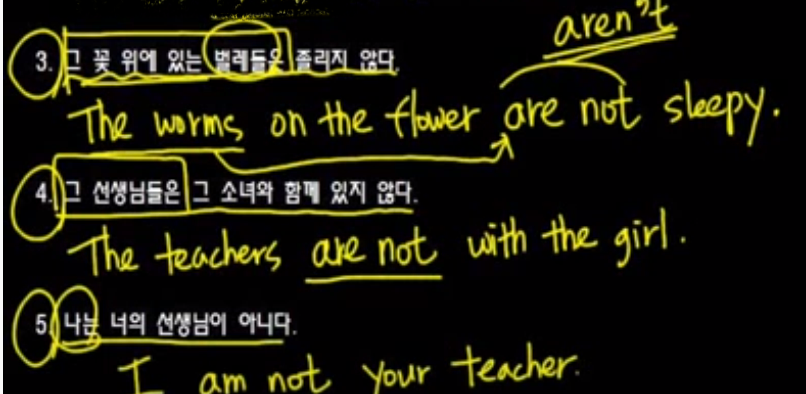 aren't
3. 그 꽃 위에 있는 벌레들은 졸리지 않다.
The worms on the flower are not sleepy.
4. 그 선생님들은 그 소녀와 함께 있지 않다.
The teachers are not with the girl.
5. 나는 너의 선생님이 아니다.
I am not your teacher.